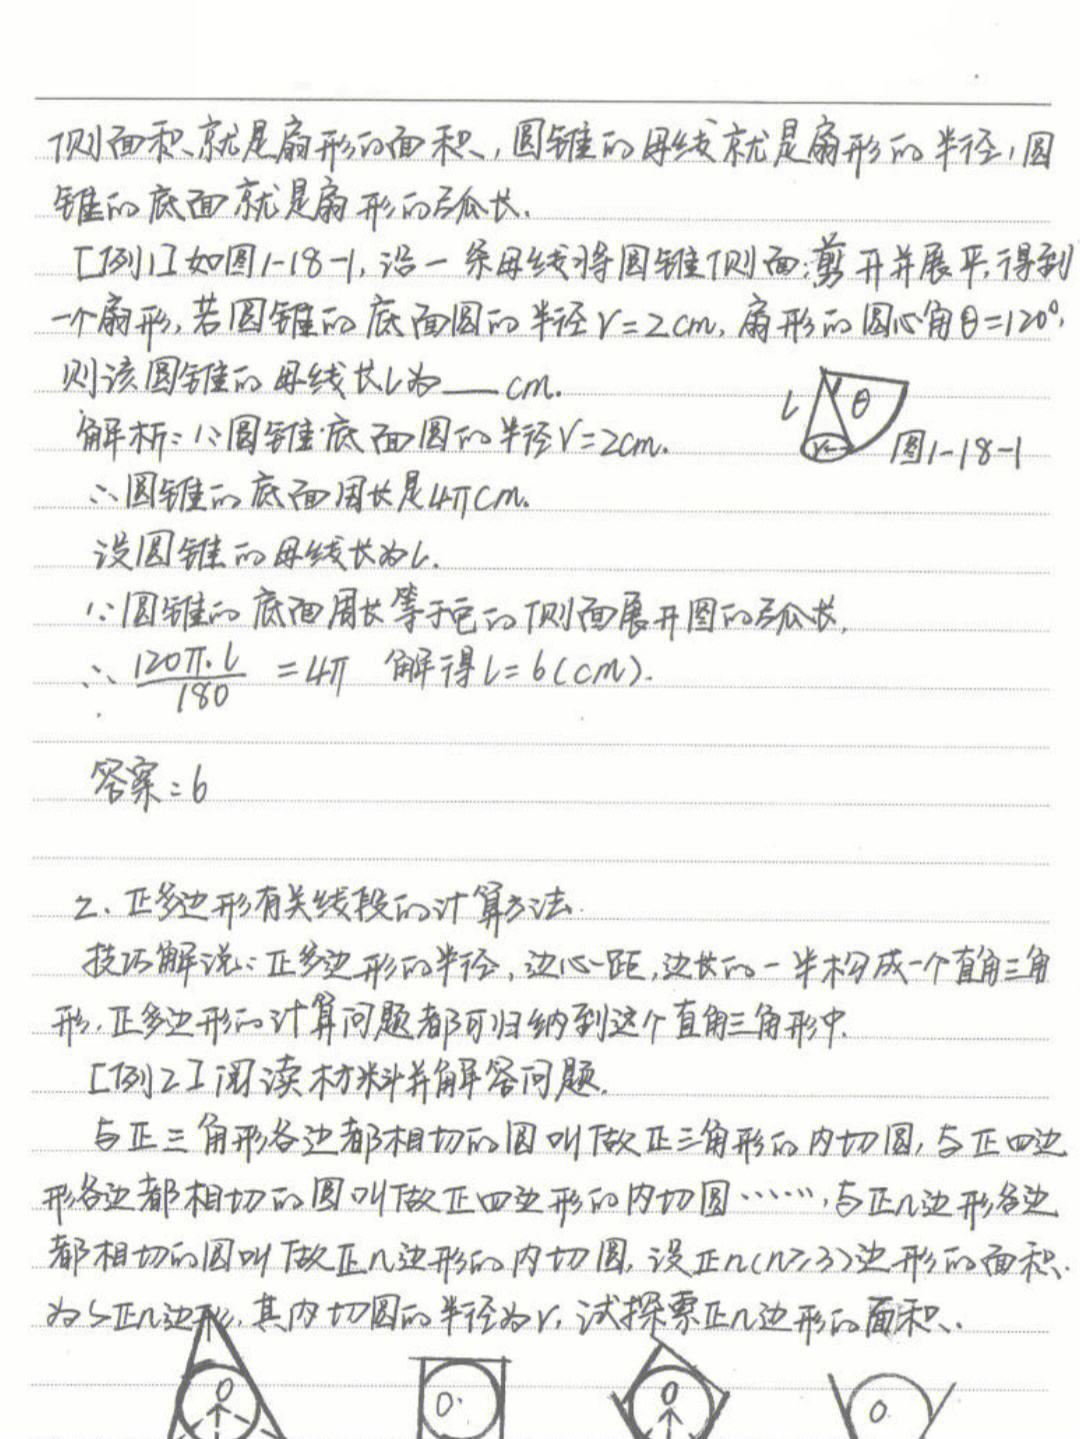 侧面积就是扇形的面积,圆锥的母线就是扇形的半径,圆
锥的底面就是扇形的弧长.
[例1]如图1-18-1,沿一条母线将圆锥侧面剪开并展平,得到
一个扇形,若圆锥的底面圆的半径r=2cm,扇形的圆心角θ=120°,
则该圆锥的母线长L为___cm.
L θ
r
图1-18-1
解析:∵圆锥底面圆的半径r=2cm.
∴圆锥的底面周长是4πcm.
设圆锥的母线长为L.
∵圆锥的底面周长等于它的侧面展开图的弧长,
∴ 120π·L/180 =4π 解得L=6(cm).
答案:6
2、正多边形有关线段的计算方法.
技巧解说:正多边形的半径,边心距,边长的一半构成一个直角三角
形,正多边形的计算问题都可归纳到这个直角三角形中.
[例2]阅读材料并解答问题.
与正三角形各边都相切的圆叫做正三角形的内切圆,与正四边
形各边都相切的圆叫做正四边形的内切圆……,与正n边形各边
都相切的圆叫做正n边形的内切圆,设正n(n≥3)边形的面积
为S正n边形,其内切圆的半径为r,试探索正n边形的面积.
O O O O